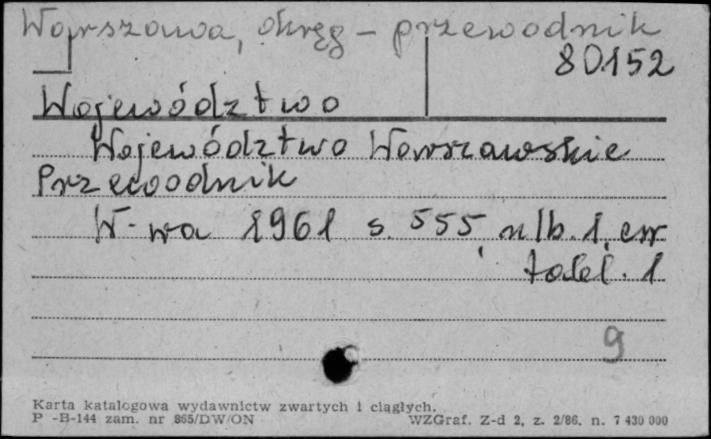 Warszawa, okręg - przewodnik
80152
Województwo
Województwo Warszawskie
Przewodnik
W-wa 1961 s. 555, nlb. 1, err
tabl. 1
9
Karta katalogowa wydawnictw zwartych i ciągłych.
P -B-144 zam. nr 865/DW/ON WZGraf. Z-d 2, z. 2/86. n. 7 430 000